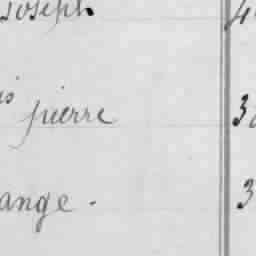 Joseph 4
is pierre 3
ange. 3